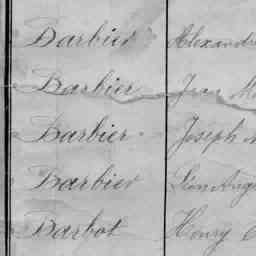 Barbier Alexandr
Barbier Jean M
Barbier Joseph
Barbier Léon Aug
Barbot Henry